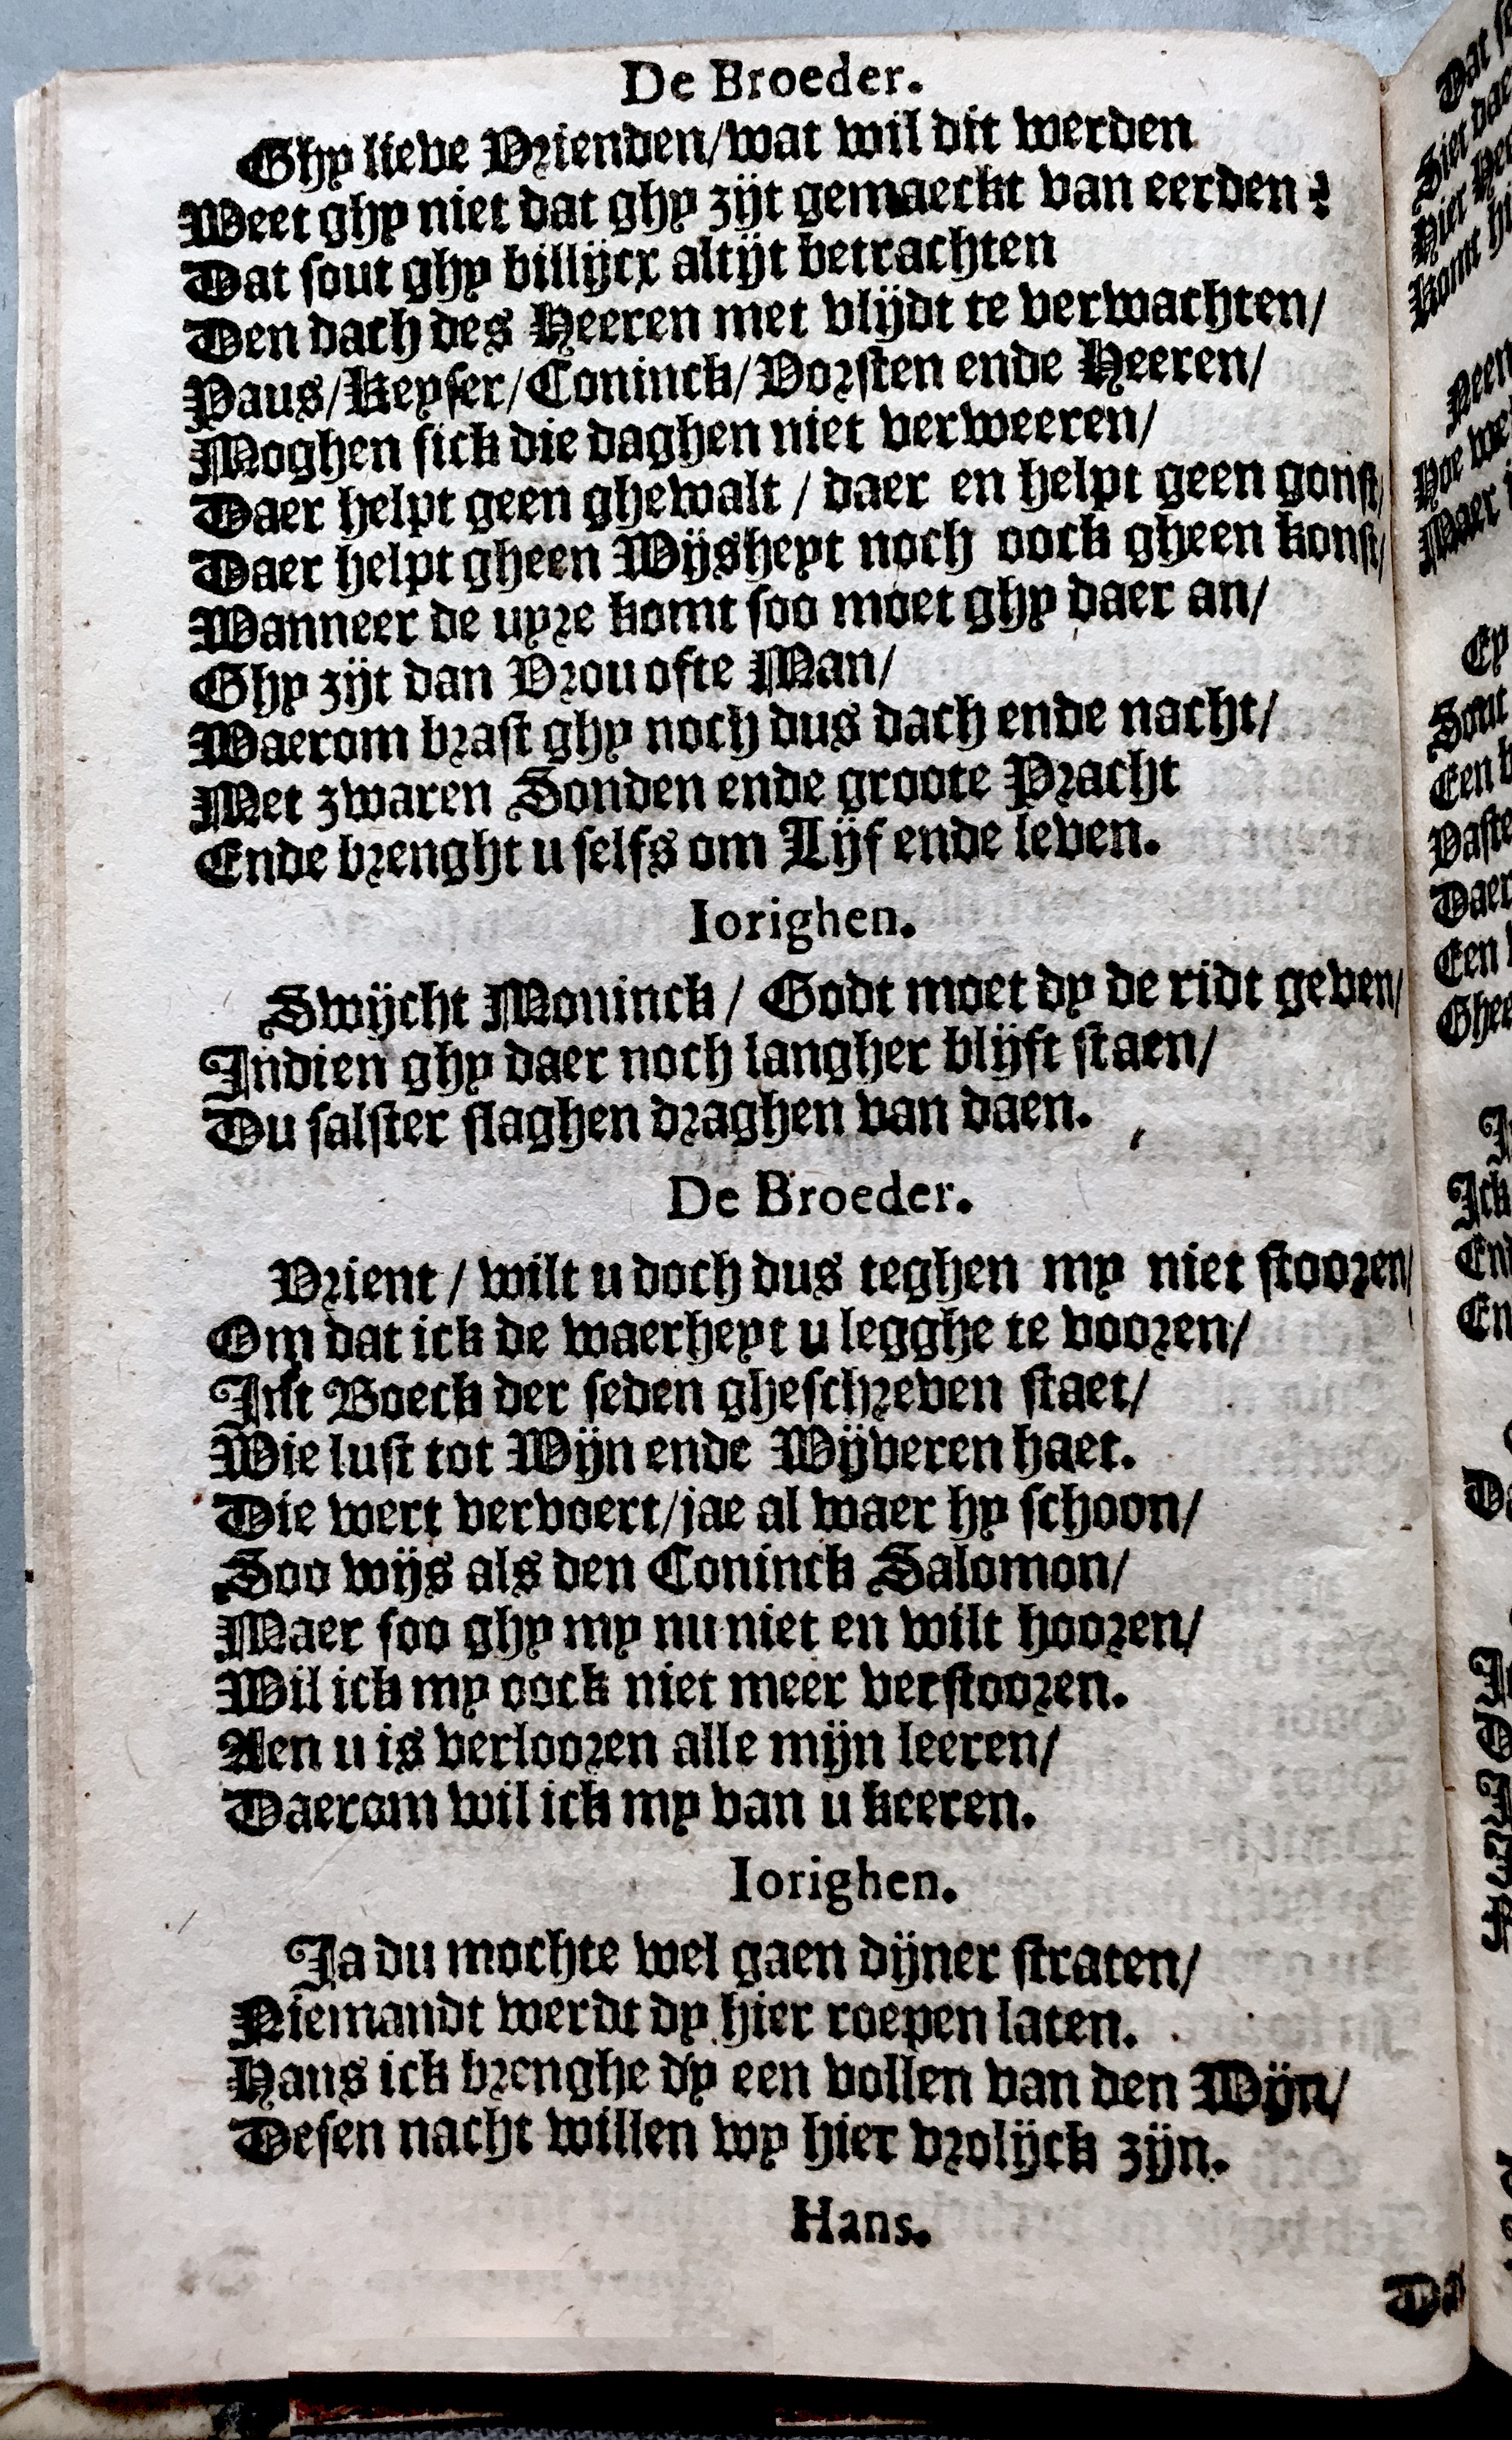 De Broeder.
Ghy lieve Vrienden/wat wil dit werden
Weet ghy niet dat ghy zijt gemaeckt van eerden?
Dat sout ghy billijcx altijt betrachten
Den dach des Heeren met vlijdt te verwachten/
Paus/Keyser/Coninck/Vorsten ende Heeren/
Moghen sick die daghen niet verweeren/
Daer helpt geen ghewalt / daer en helpt geen gonst/
Daer helpt gheen Wijsheyt noch oock gheen konst/
Wanneer de uyre komt soo moet ghy daer an/
Ghy zijt dan Vrou ofte Man/
Waerom brast ghy noch dus dach ende nacht/
Met zwaren Sonden ende groote Pracht
Ende brenght u selfs om Lijf ende leven.
Iorighen.
Swijcht Moninck / Godt moet dy de ridt geven/
Indien ghy daer noch langher blijft staen/
Du salster slaghen draghen van daen.
De Broeder.
Vrient / wilt u doch dus teghen my niet stooren/
Om dat ick de waerheyt u legghe te vooren/
Int Boeck der seden gheschreven staet/
Wie lust tot Wijn ende Wijveren haet.
Die wert vervoert/jae al waer hy schoon/
Soo wijs als den Coninck Salomon/
Maer soo ghy my nu niet en wilt hooren/
Wil ick my oock niet meer verstooren.
Aen u is verlooren alle mijn leeren/
Daerom wil ick my van u keeren.
Iorighen.
Ja du mochte wel gaen dijner straten/
Niemandt werdt dy hier roepen laten.
Hans ick brenghe dy een vollen van den Wijn/
Desen nacht willen wy hier vrolijck zijn.
Hans.